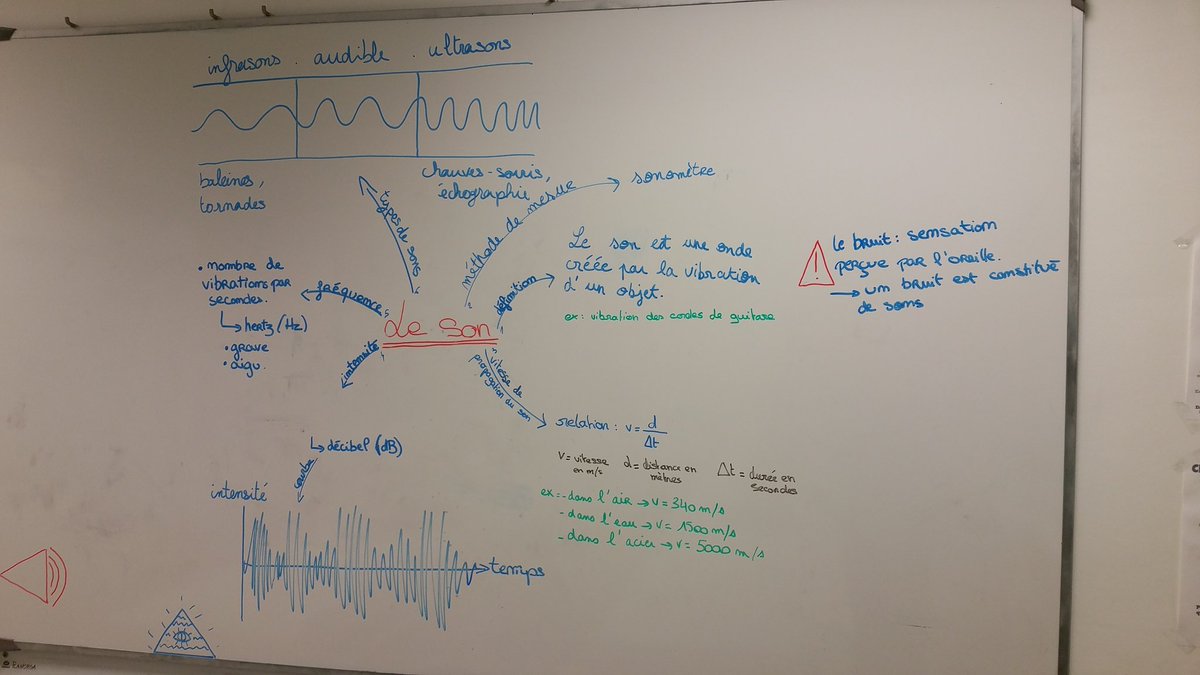 infrasons . audible . ultrasons
baleines,
tornades
chauves-souris,
échographie
types de sons
méthode de mesure
sonomètre
définition
Le son est une onde
créée par la vibration
d'un objet.
ex: vibration des cordes de guitare
!
le bruit: sensation
perçue par l'oreille.
→ un bruit est constitué
de sons
fréquence
• nombre de
vibrations par
secondes.
↳ hertz (Hz)
• grave
• aigu.
Le son
intensité
↳ décibel (dB)
courbe
intensité
temps
vitesse de
propagation du son
relation: v = d/Δt
v = vitesse
en m/s
d = distance en
mètres
Δt = durée en
secondes
ex: - dans l'air → v = 340 m/s
- dans l'eau → v = 1500 m/s
- dans l'acier → v = 5000 m/s